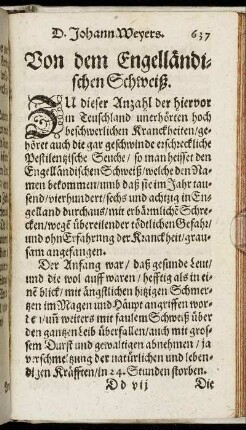 D. Johann Weyers. 637
Von dem Engelländi-
schen Schweiß.
ZU dieser Anzahl der hiervor
in Teuschland unerhörten hoch
beschwerlichen Kranckheiten/ge-
höret auch die gar geschwinde erschreckliche
Pestilentzische Seuche/ so man heisset den
Engelländischen Schweiß/welche den Na-
men bekommen/unnd daß sie im Jahr tau-
send/vierhundert/sechs und achtzig in En-
gelland durchauß/mit erbärmlichē Schre-
cken/wegē übereilender tödtlichen Gefahr/
und ohn Erfahrung der Kranckheit/grau-
sam angefangen.
Der Anfang war/ daß gesunde Leut/
und die wol auff waren/ hefftig als in ei-
nē blick/mit ängstlichen hitzigen Schmer-
tzen im Magen und Häupt angriffen wor-
dē/uñ weiters mit faulem Schweiß über
den gantzen Leib überfallen/auch mit gros-
sem Durst und gewaltigen abnehmen/ ja
verschmeltzung der natürlichen und leben-
digen Kräfften/in 24. Stunden storben.
Dd vij Die